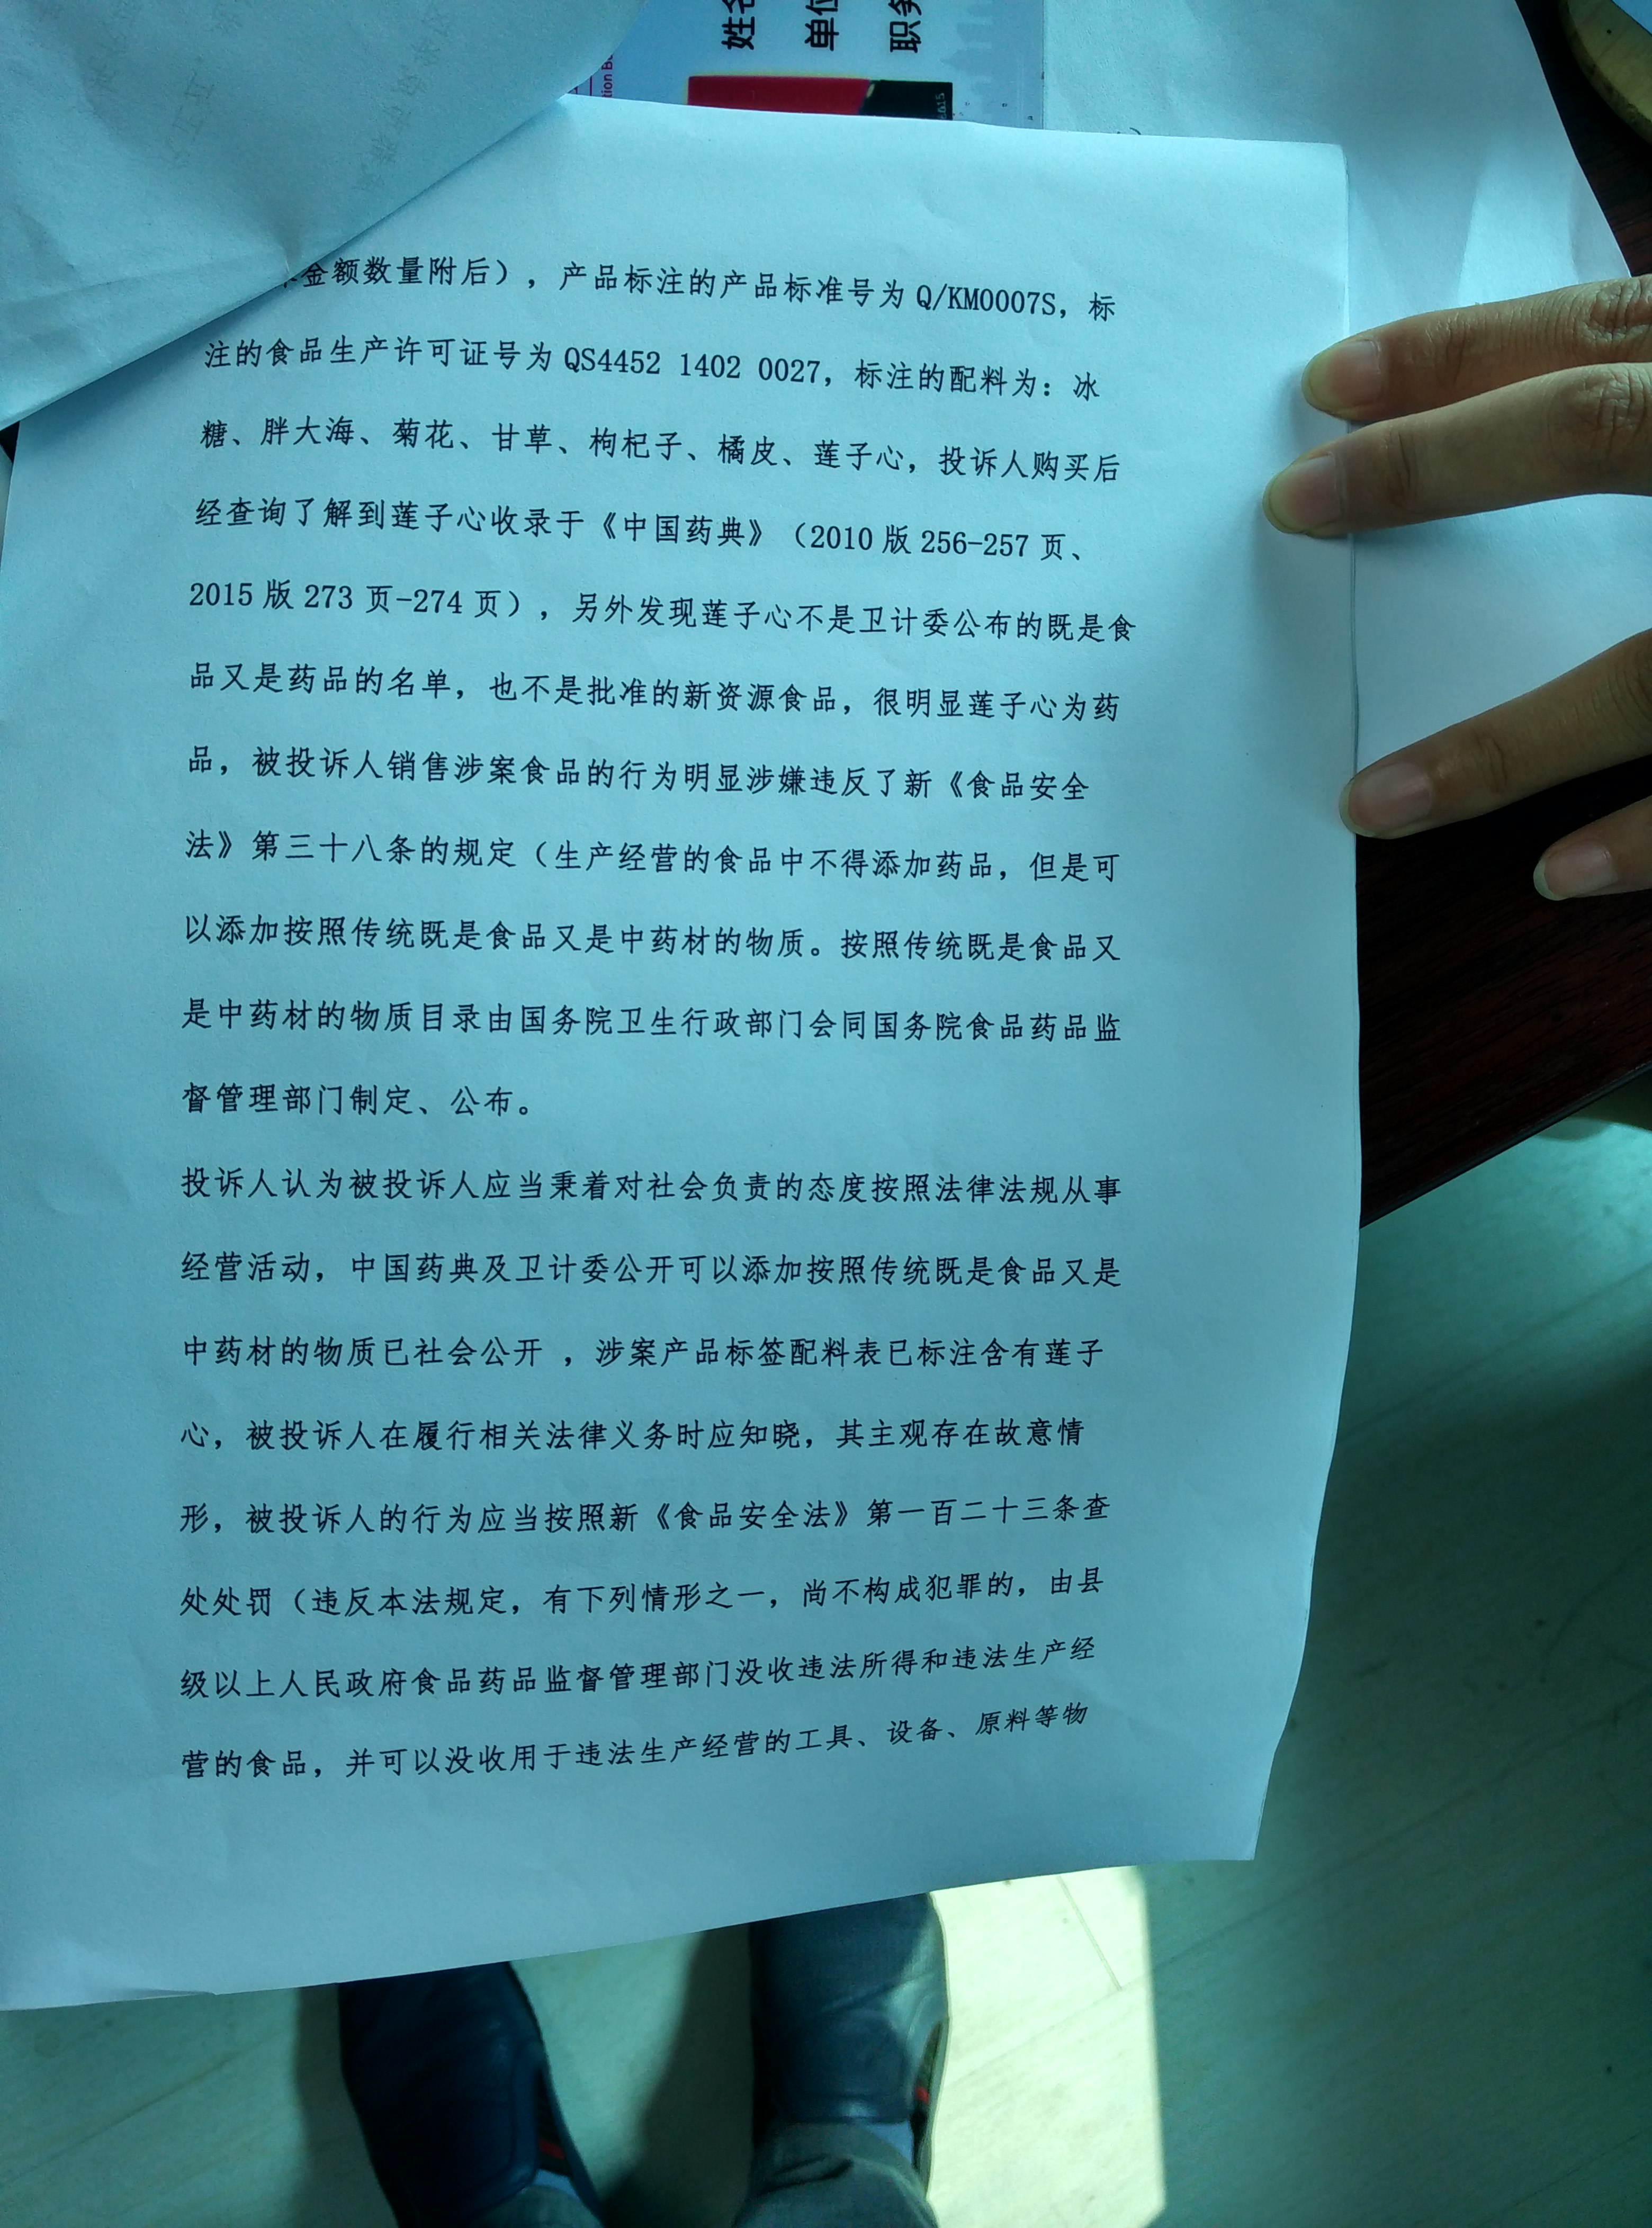 姓名
单位
职务
金额数量附后），产品标注的产品标准号为 Q/KM0007S，标
注的食品生产许可证号为 QS4452 1402 0027，标注的配料为：冰
糖、胖大海、菊花、甘草、枸杞子、橘皮、莲子心，投诉人购买后
经查询了解到莲子心收录于《中国药典》（2010 版 256-257 页、
2015 版 273 页-274 页），另外发现莲子心不是卫计委公布的既是食
品又是药品的名单，也不是批准的新资源食品，很明显莲子心为药
品，被投诉人销售涉案食品的行为明显涉嫌违反了新《食品安全
法》第三十八条的规定（生产经营的食品中不得添加药品，但是可
以添加按照传统既是食品又是中药材的物质。按照传统既是食品又
是中药材的物质目录由国务院卫生行政部门会同国务院食品药品监
督管理部门制定、公布。
投诉人认为被投诉人应当秉着对社会负责的态度按照法律法规从事
经营活动，中国药典及卫计委公开可以添加按照传统既是食品又是
中药材的物质已社会公开 ，涉案产品标签配料表已标注含有莲子
心，被投诉人在履行相关法律义务时应知晓，其主观存在故意情
形，被投诉人的行为应当按照新《食品安全法》第一百二十三条查
处处罚（违反本法规定，有下列情形之一，尚不构成犯罪的，由县
级以上人民政府食品药品监督管理部门没收违法所得和违法生产经
营的食品，并可以没收用于违法生产经营的工具、设备、原料等物